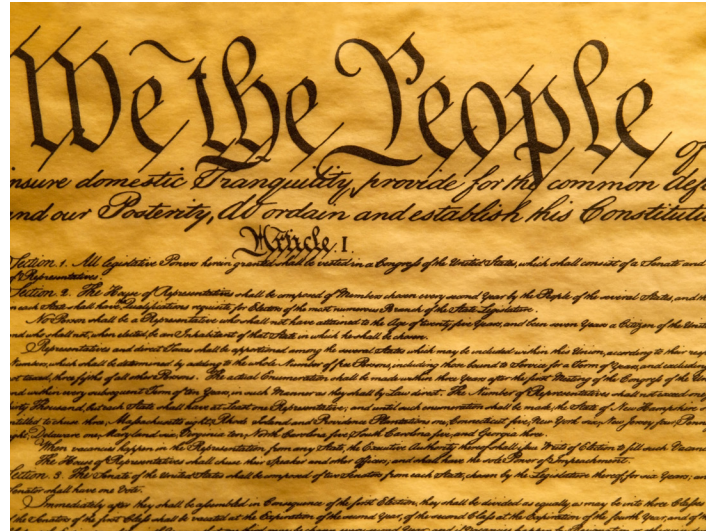 We the People of
insure domestic Tranquility, provide for the common def
nd our Posterity, do ordain and establish this Constituti
Article. I.
Section. 1. All legislative Powers herein granted shall be vested in a Congress of the United States, which shall consist of a Senate and
of Representatives.
Section. 2. The House of Representatives shall be composed of Members chosen every second Year by the People of the several States, and th
in each State shall have the Qualifications requisite for Electors of the most numerous Branch of the State Legislature.
No Person shall be a Representative who shall not have attained to the Age of twenty five Years, and been seven Years a Citizen of the Unite
and who shall not, when elected, be an Inhabitant of that State in which he shall be chosen.
Representatives and direct Taxes shall be apportioned among the several States which may be included within this Union, according to their resp
Numbers, which shall be determined by adding to the whole Number of free Persons, including those bound to Service for a Term of Years, and excluding
not taxed, three fifths of all other Persons. The actual Enumeration shall be made within three Years after the first Meeting of the Congress of the
and within every subsequent Term of ten Years, in such Manner as they shall by Law direct. The Number of Representatives shall not exceed one
thirty Thousand, but each State shall have at Least one Representative; and until such enumeration shall be made, the State of New Hampshire
entitled to chuse three, Massachusetts eight, Rhode Island and Providence Plantations one, Connecticut five, New York six, New Jersey four, Penn
eight, Delaware one, Maryland six, Virginia ten, North Carolina five, South Carolina five, and Georgia three.
When vacancies happen in the Representation from any State, the Executive Authority thereof shall issue Writs of Election to fill such Vacanci
The House of Representatives shall chuse their Speaker and other Officers; and shall have the sole Power of Impeachment.
Section. 3. The Senate of the United States shall be composed of two Senators from each State, chosen by the Legislature thereof, for six Years; an
Senator shall have one Vote.
Immediately after they shall be assembled in Consequence of the first Election, they shall be divided as equally as may be into three Classes
of the Senators of the first Class shall be vacated at the Expiration of the second Year, of the second Class at the Expiration of the fourth Year, and of the